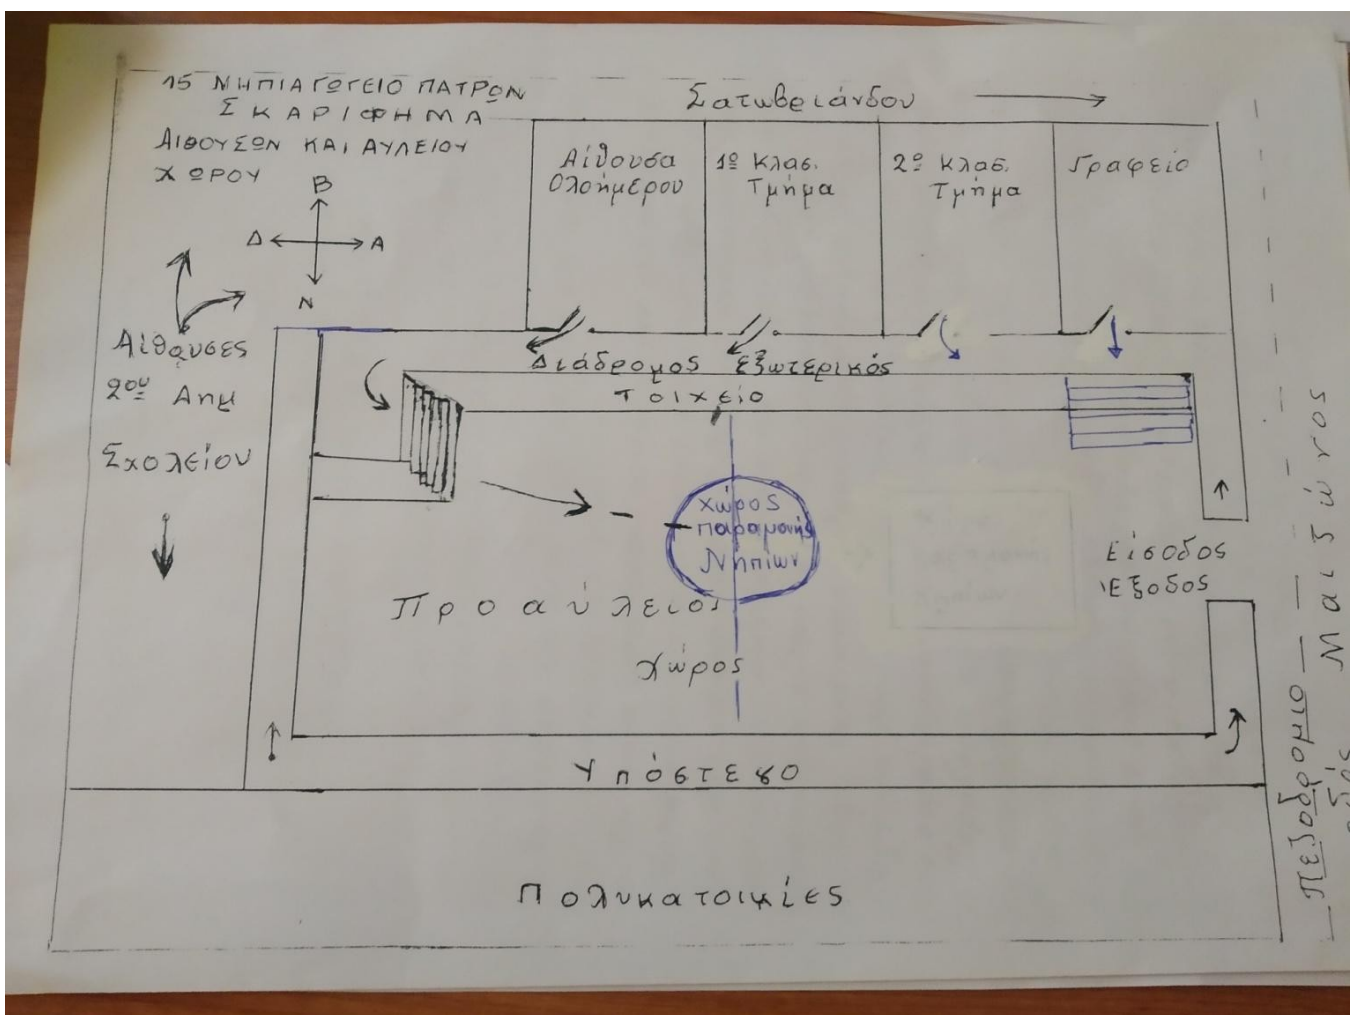 15 ΝΗΠΙΑΓΩΓΕΙΟ ΠΑΤΡΩΝ
ΣΚΑΡΙΦΗΜΑ
ΑΙΘΟΥΣΩΝ ΚΑΙ ΑΥΛΕΙΟΥ
ΧΩΡΟΥ
Σατωβριάνδου
Β
Δ
Α
Ν
Αίθουσα
Ολοήμερου
1º Κλασ.
Τμήμα
2º Κλασ.
Τμήμα
Γραφείο
Αίθουσες
2ου Δημ
Σχολείου
Διάδρομος εξωτερικός
Τοιχείο
Χώρος
παραμονής
Νηπίων
Προαύλειος
Χώρος
Είσοδος
Έξοδος
Υπόστεγο
Πολυκατοικίες
Πεζοδρομιο
οδός Μαιζώνος